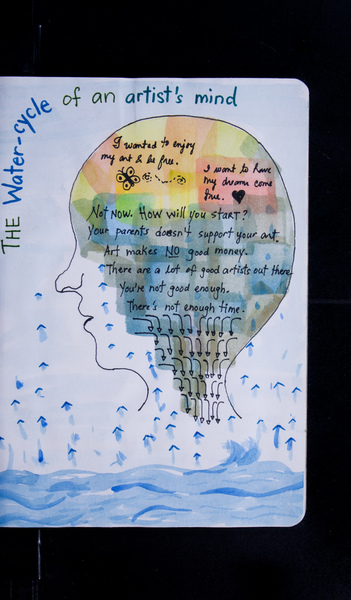 THE Water-cycle of an artist's mind
I wanted to enjoy
my art & be free.
I want to have
my dream come
true.
Not now. How will you START?
Your parents doesn't support your art.
Art makes NO good money.
There are a lot of good artists out there.
You're not good enough.
There's not enough time.